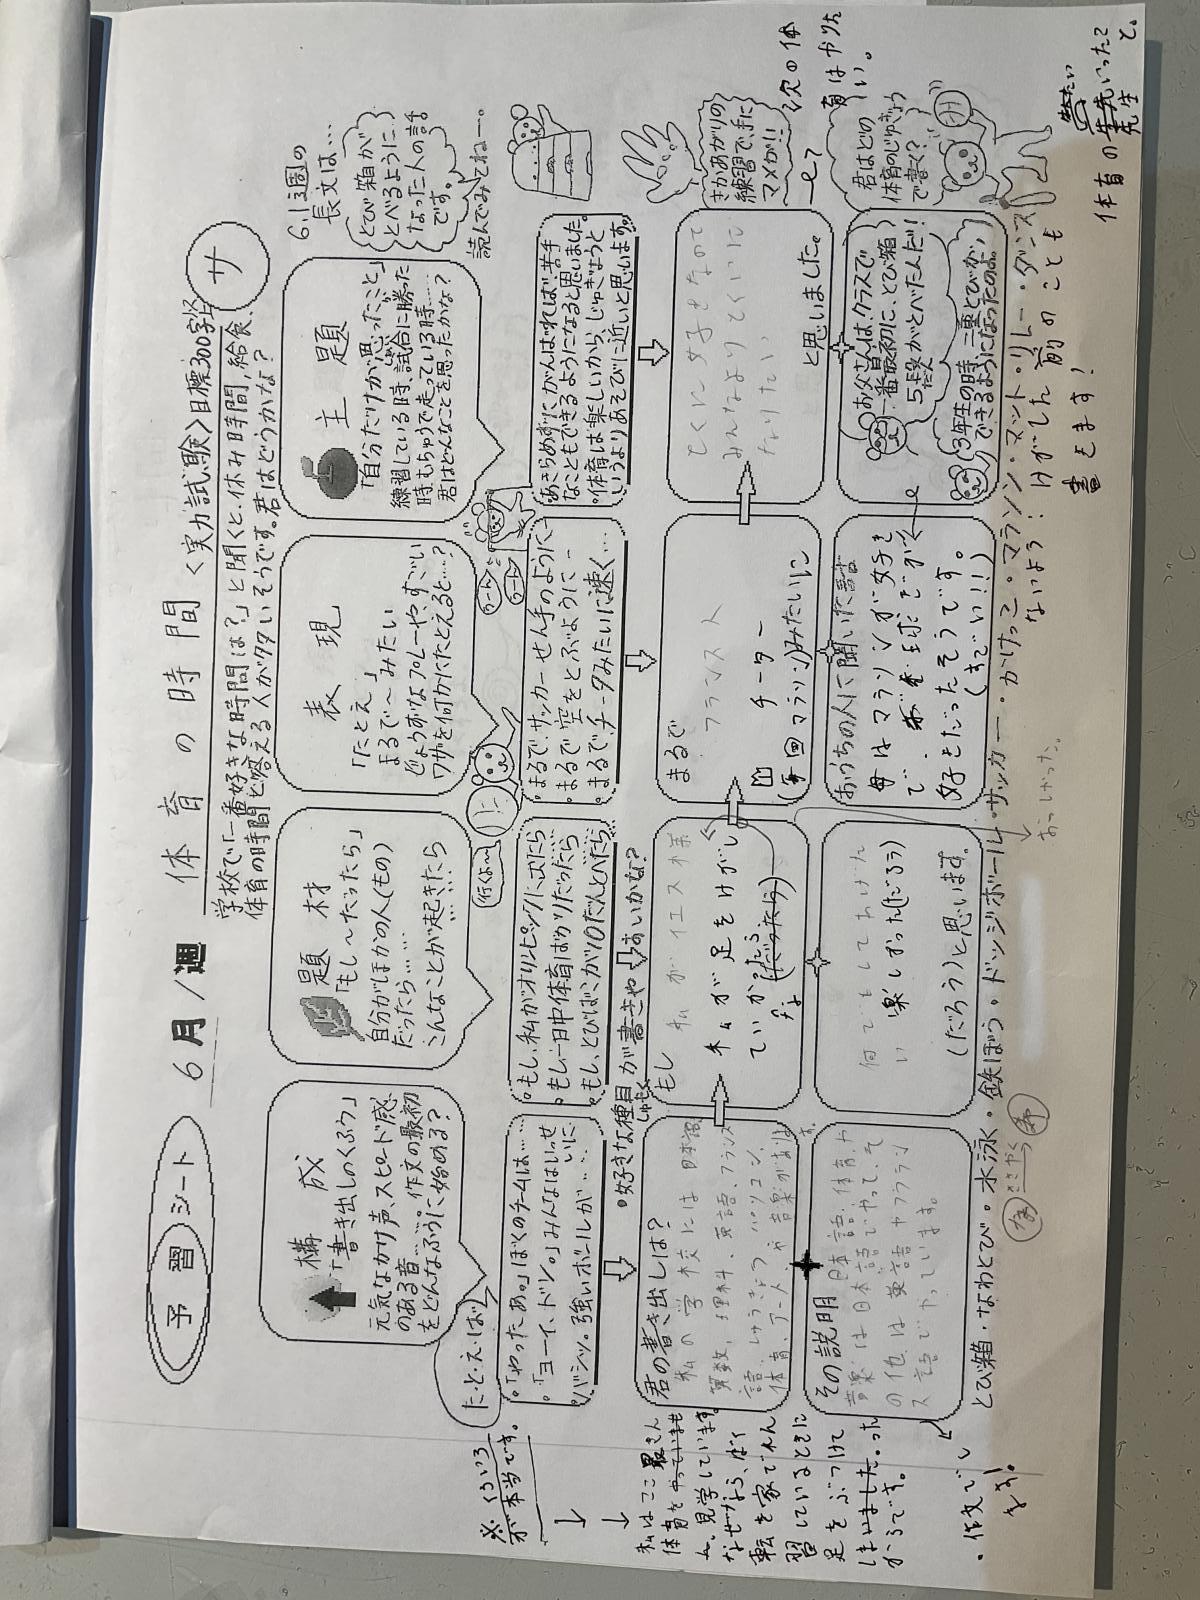 予習シート
6月1週
体育の時間
〈実力試験〉目標300字
サ
学校で「一番好きな時間は?」と聞くと、休み時間、給食、
体育の時間と答える人が多いそうです。君はどうかな?
構成
「書き出しのくふう」
元気なかけ声、スピード感
のある音……。作文の最初
をどんなふうに始める?
題材
「もし~だったら」
自分がほかの人(もの)
だったら……
こんなことが起きたら
表現
「たとえ」
まるで~みたい
どうぶつ
ワザを何かにたとえると…?
主題
「自分だけが思ったこと」
練習している時、試合に勝った
時、もちゅうで走っている時……
君はどんなことを思ったかな?
6.1週の
長文は…
とび箱が
とべるように
なった人の話
です。
読んでみてねー。
た・と・え・ば
行くよ~
※くろいろ
が本当です。
・「やったあ。」ぼくのチームは……
・「ヨーイ、ドン。」みんなはいっせいに
・バシッ。強いボールが……
・もし、私がオリンピックに出たら
・もし、一日中体育ばかりだったら
・もし、とびばこが10だんとべたら
・まるで、サッカーせん手のように
・まるで空をとぶように
・まるで、チータみたいに速く…
・あきらめずにがんばれば、苦手
なこともできるようになると思いました。
・体育は楽しいから、じゅぎょうと
いうよりあそびに近いと思います。
・好きな種目が書きやすいかな?
しゅもく
さかあがりの
練習で、手に
マメが!!
君の書き出しは?
私の学校には日本語
算数、理科、英語、フランス
語、しゅうきょう、パソコン、
体育、アートや音楽があります。
もし 私がイエス様
私が足をけがし
ていなかったら
(だったら)
まるで
フランスト
チーター
(前回マラソン)みたいに
とくに好きなので
みんなよりとくいに
なりたい
と思いました。
次の体
育はやりた
い。
その説明 日本語、体育や
音楽は日本語でやって、そ
の他は英語やフラン
ス語でやっています。
何でもしてあげた
い 楽しかった(だろう)
(だろう)と思います。
おうちの人に聞いた話
母はマラソンが好き
で
好きだったそうです。
(すごい!!!)
お父さんは、クラスで
一番最初に、とび箱
5段がとべた人だ!
だん
3年生の時、二重とびが
できるようになったのよ。
君はどの
体育のじゅぎょう
で書く?
私はここ最きん
体育をやっていませ
ん。見学しています。
なぜなら、自て
転を家でれん
習しているときに
足をぶつけて
しまいました。った
からです。
とび箱・なわとび・水泳・鉄ぼう・ドッジボール・サッカー・かけっこ・マラソン・マット・リレー・ダンス
・作文で
おっしゃった。
ないよう!けがした前のことも
書きます!
体育の先生